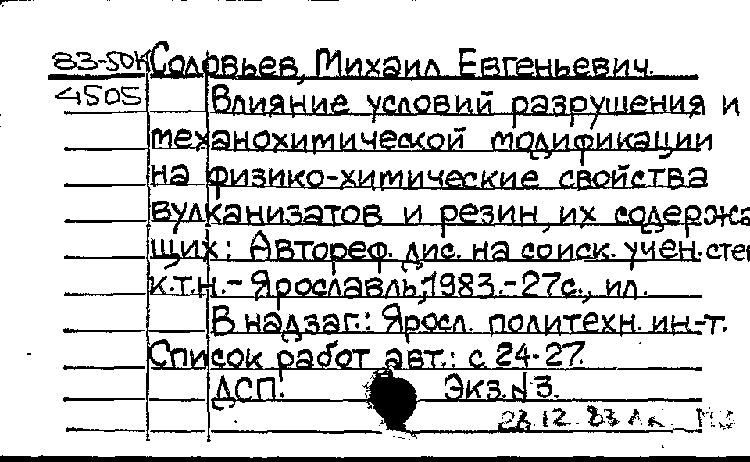 83-50К Соловьев, Михаил Евгеньевич.
4505 Влияние условий разрушения и
механохимической модификации
на физико-химические свойства
вулканизатов и резин, их содержа
щих: Автореф. дис. на соиск. учен. степ
к.т.н. - Ярославль, 1983. - 27с., ил.
В надзаг.: Яросл. политехн. ин-т.
Список работ авт.: с. 24-27.
ДСП. Экз. №3.
28.12.83